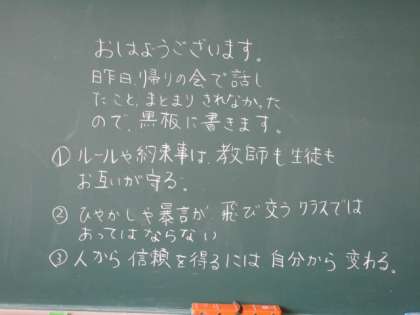 おはようございます。
昨日、帰りの会で話し
たこと、まとまりきれなかった
ので、黒板に書きます。
① ルールや約束事は、教師も生徒も
お互いが守る。
② ひやかしや暴言が、飛び交うクラスでは
あってはならない
③ 人から信頼を得るには自分から変わる。